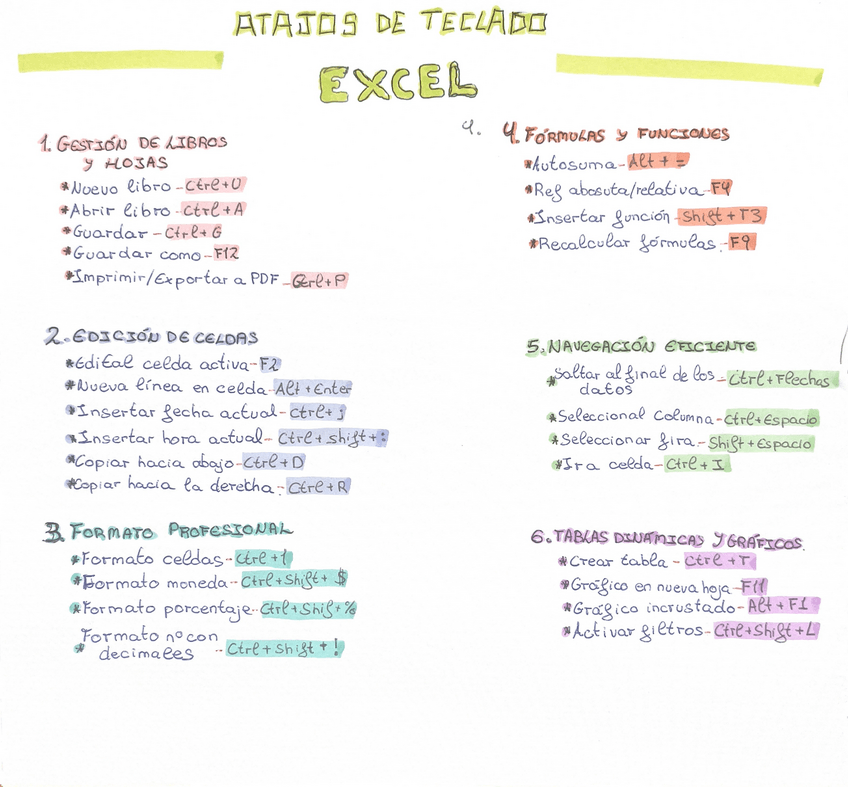 ATAJOS DE TECLADO
EXCEL
1. GESTIÓN DE LIBROS
Y HOJAS
*Nuevo libro - Ctrl+U
*Abrir libro - Ctrl+A
*Guardar - Ctrl+G
*Guardar como - F12
*Imprimir/Exportar a PDF - Ctrl+P
2. EDICIÓN DE CELDAS
*Edital celda activa - F2
*Nueva línea en celda - Alt+Enter
*Insertar fecha actual - Ctrl+;
*Insertar hora actual - Ctrl+shift+:
*Copiar hacia abajo - Ctrl+D
*Copiar hacia la deretha - Ctrl+R
3. FORMATO PROFESIONAL
*Formato celdas - Ctrl+1
*Formato moneda - Ctrl+Shift+$
*Formato porcentaje - Ctrl+Shif+%
Formato nº con
* decimales - Ctrl+Shift+!
4. 4. FÓRMULAS Y FUNCIONES
*Autosuma - Alt+=
*Ref absouta/relativa - F4
*Insertar función - Shift+T3
*Recalcular fórmulas - F9
5. NAVEGACIÓN EFICIENTE
*Saltar al final de los - Ctrl+Flechas
datos
*Seleccional Columna - Ctrl+Espacio
*Seleccionar fira - Shift+Espacio
*Ir a celda - Ctrl+I
6. TABLAS DINÁMICAS Y GRÁFICOS.
*Crear tabla - Ctrl+T
*Gráfico en nueva hoja - F11
*Gráfico incrustado - Alt+F1
*Activar filtros - Ctrl+Shift+L